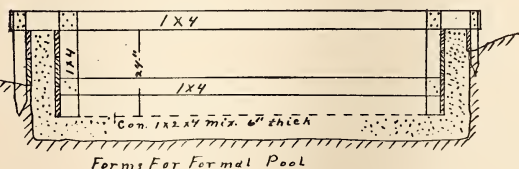 1X4
1X4
24"
1X4
Con. 1x2x4 mix. 6" thick
Forms For Formal Pool